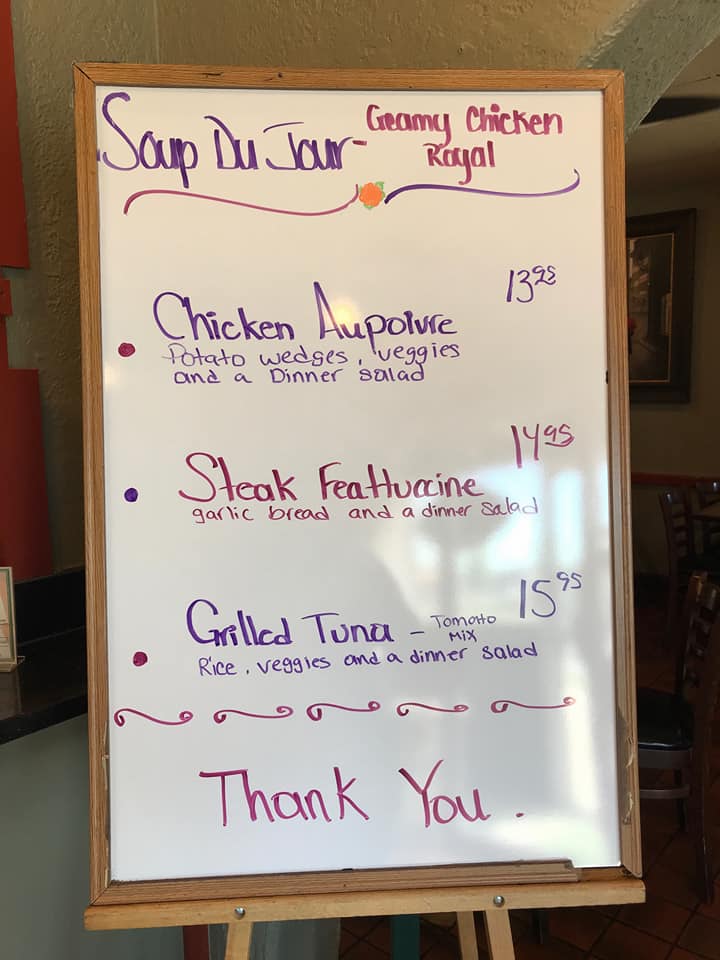 Soup Du Jour - Creamy Chicken
Royal
13 95
Chicken Aupoivre
Potato wedges, veggies
and a Dinner salad
14 95
Steak Feattuccine
garlic bread and a dinner salad
15 95
Grilled Tuna - Tomatto
Mix
Rice, veggies and a dinner salad
Thank You.